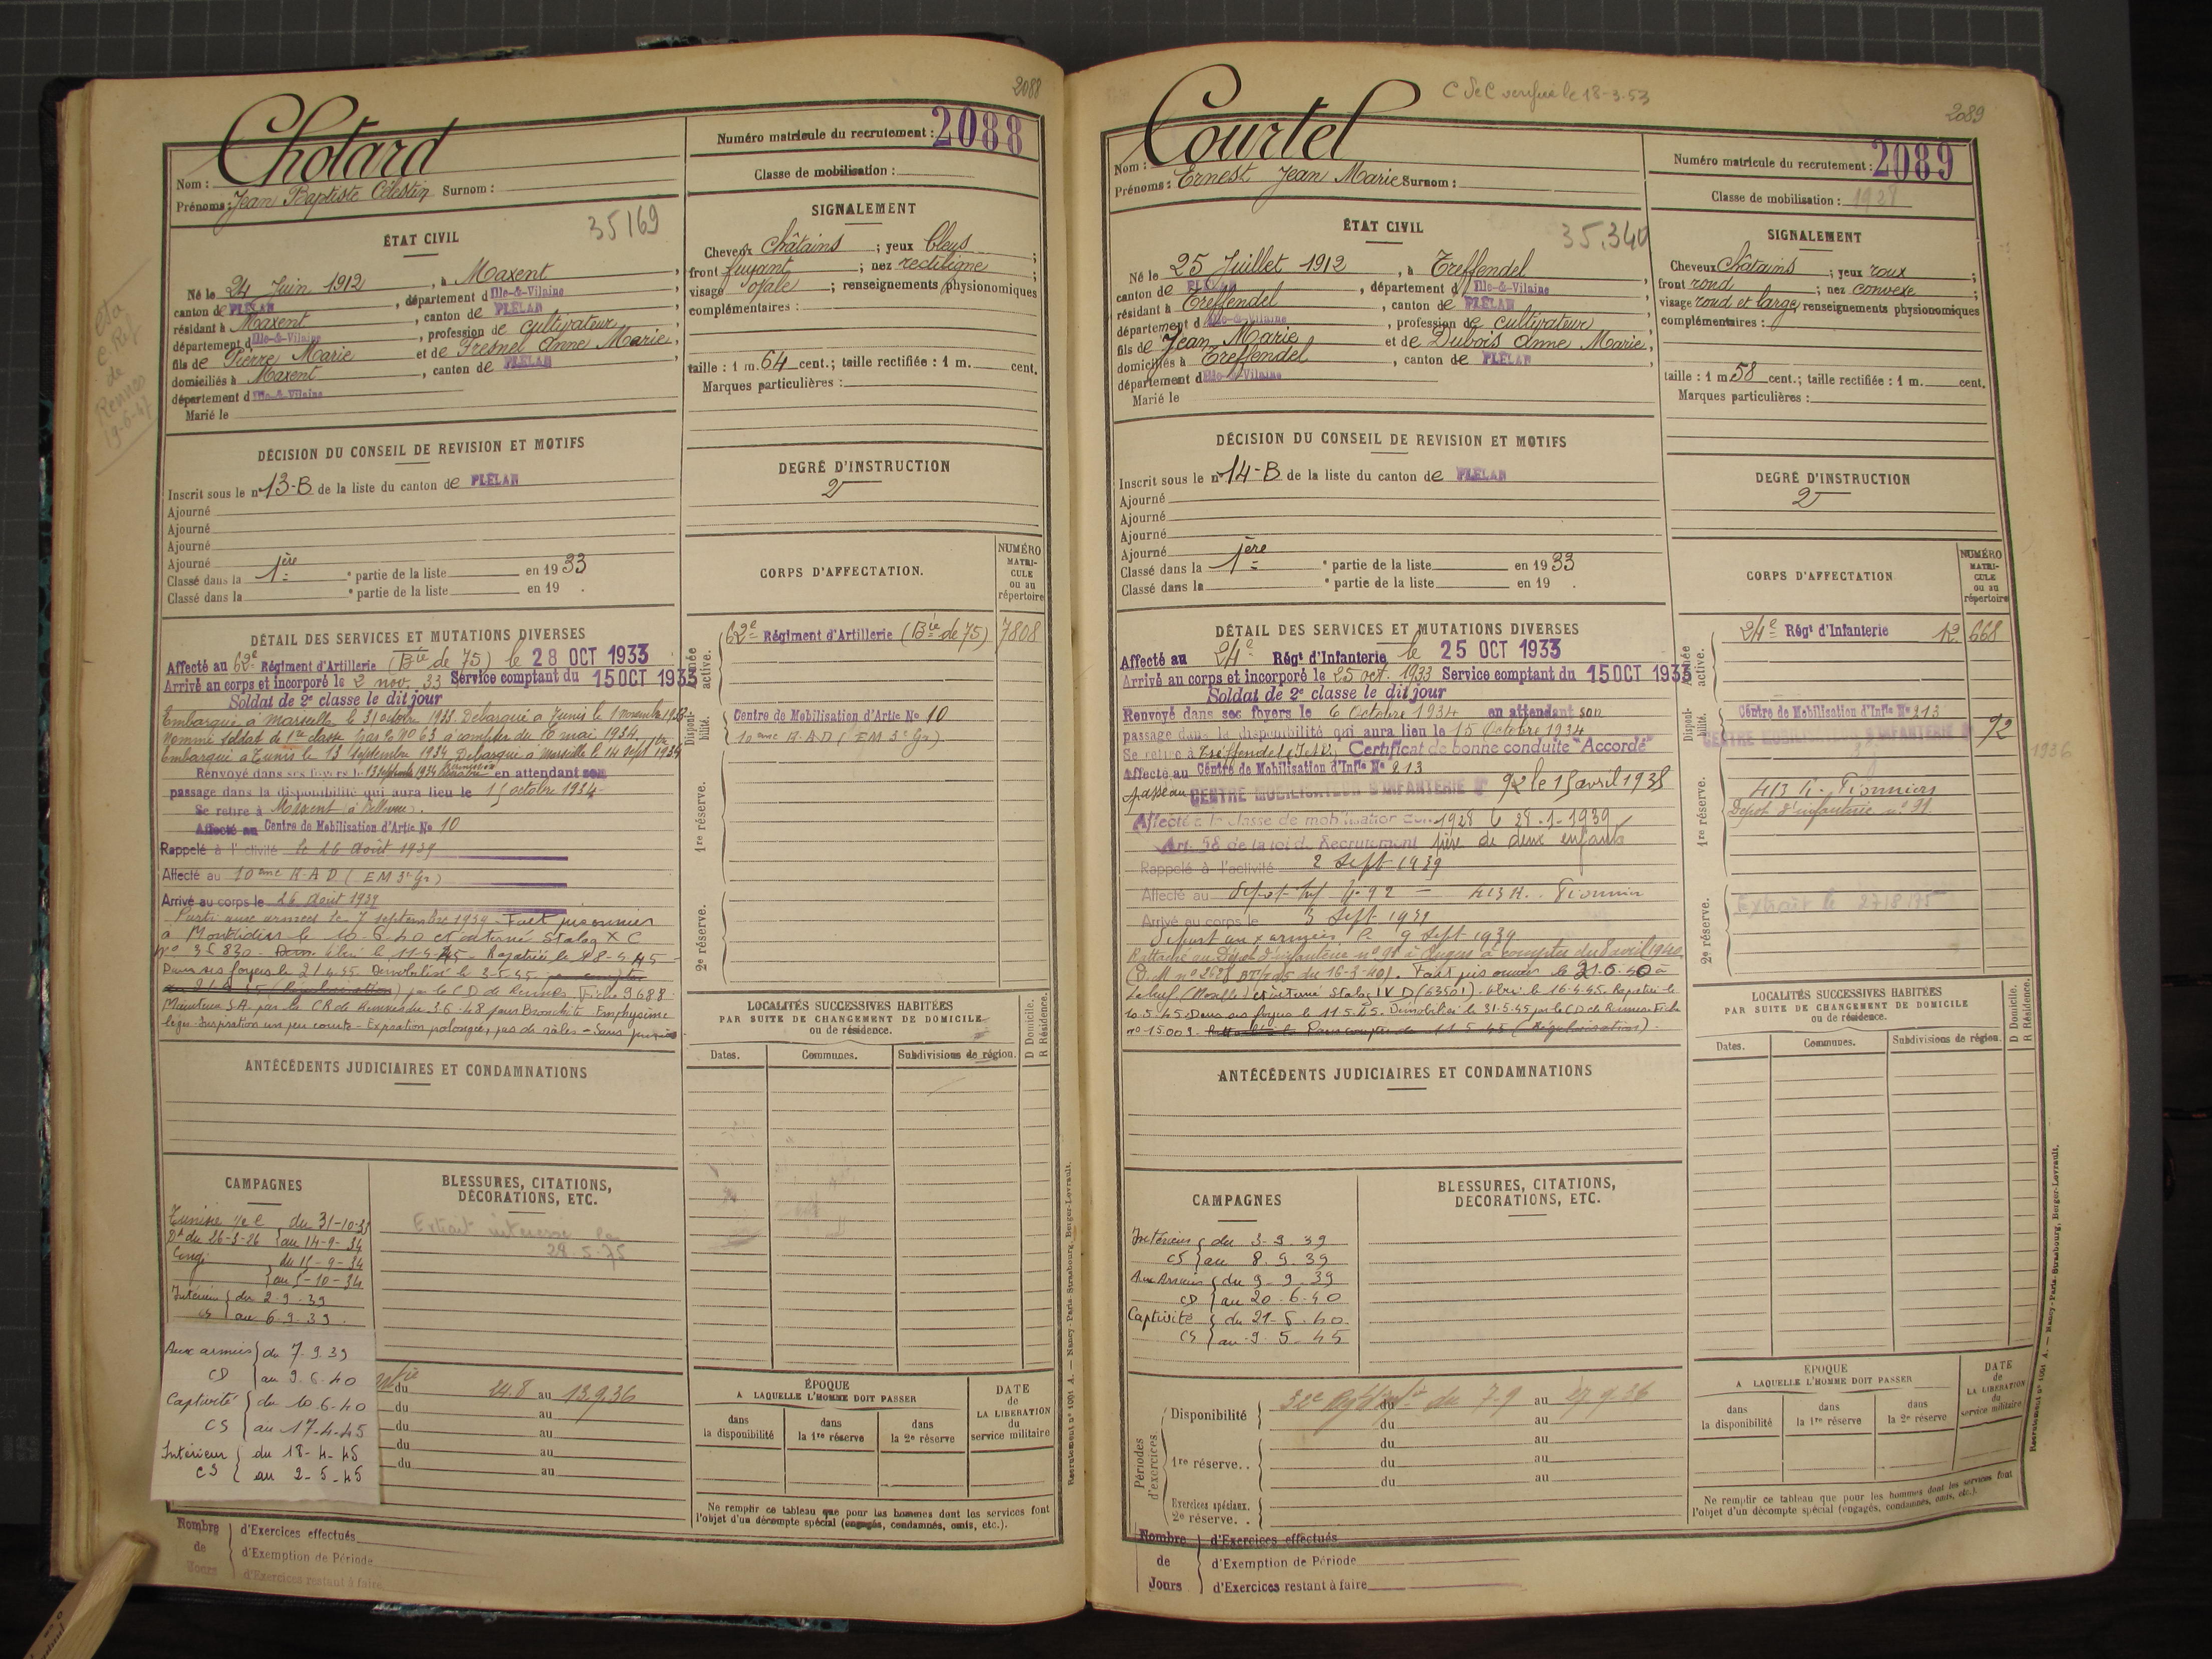 2088
Chotard
Nom :
Prénoms : Jean Baptiste Célestin Surnom :
Numéro matricule du recrutement : 2088
Classe de mobilisation :
ÉTAT CIVIL
35169
Né le 24 Juin 1912, à Maxent,
canton de PLÉLAN, département d Ille-&-Vilaine
résidant à Maxent, canton de PLÉLAN
département d Ille-&-Vilaine, profession de cultivateur,
fils de Pierre Marie et de Fresnel Anne Marie,
domiciliés à Maxent, canton de PLÉLAN
département d Ille-&-Vilaine
Marié le
SIGNALEMENT
Cheveux châtains ; yeux bleus ;
front fuyant ; nez rectiligne ;
visage ovale ; renseignements physionomiques
complémentaires :
taille : 1 m. 64 cent. ; taille rectifiée : 1 m. cent.
Marques particulières :
DÉCISION DU CONSEIL DE REVISION ET MOTIFS
Inscrit sous le n° 13-B de la liste du canton de PLÉLAN
Ajourné
Ajourné
Ajourné
Ajourné
Classé dans la 1ère partie de la liste en 1933
Classé dans la e partie de la liste en 19 .
DEGRÉ D'INSTRUCTION
2
CORPS D'AFFECTATION.
NUMÉRO MATRICULE ou au répertoire
Armée active.
62e Régiment d'Artillerie (Bie de 75) 7808
Disponibilité.
Centre de Mobilisation d'Artie No 10
10ème R.A.D (EM 3e Gr)
1re réserve.
2e réserve.
DÉTAIL DES SERVICES ET MUTATIONS DIVERSES
Affecté au 62e Régiment d'Artillerie (Bie de 75) le 28 OCT 1933
Arrivé au corps et incorporé le 2 nov. 33 Service comptant du 15 OCT 1933
Soldat de 2e classe le dit jour
Embarqué à Marseille le 31 octobre 1933. Débarqué à Tunis le 1 novembre 1933
Nommé soldat de 1re classe par O. No 63 à compter du 10 mai 1934
Embarqué à Tunis le 13 Septembre 1934 Débarqué à Marseille le 14 septbre 1934
Renvoyé dans ses foyers le 13 septembre 1934 en attendant son
passage dans la disponibilité qui aura lieu le 15 octobre 1934
Se retire à Maxent
Affecté au Centre de Mobilisation d'Artie No 10
Rappelé à l'activité le 26 août 1939
Affecté au 10ème R.A.D (EM 3e Gr)
Arrivé au corps le 26 Août 1939
Parti aux armées le 7 septembre 1939 - Fait prisonnier
à Montdidier le 10-6-40 et interné Stalag X C
n° 35830. libéré le 11-4-45 - Rapatrié le 18-4-45 -
Dans ses foyers le 21.4.45 Démobilisé le 3-5-45
par le CD de Rennes Fiche 9688.
Maintenu S.A. par la CR de Rennes du 3.6.48 pour Bronchite Emphysème
léger - Inspiration un peu courte - Expiration prolongée, pas de râles - Sans
ANTÉCÉDENTS JUDICIAIRES ET CONDAMNATIONS
LOCALITÉS SUCCESSIVES HABITÉES
PAR SUITE DE CHANGEMENT DE DOMICILE
ou de résidence.
D Domicile. R Résidence.
Dates. Communes. Subdivisions de région.
CAMPAGNES
Tunisie du 31-10-33
Dt du 26-3-26 au 14-9-34
Congé du 15-9-34
au 5-10-34
Intérieur du 2-9-39
CS au 6.9.39
Aux armées du 7.9.39
CD au 9.6.40
Captivité du 10.6.40
CS au 17-4-45
Intérieur du 18-4-45
CS au 2-5-45
BLESSURES, CITATIONS,
DÉCORATIONS, ETC.
Extrait intéressé le
28.5.75
du 24.8 au 13.9.36
du au
du au
du au
du au
ÉPOQUE
A LAQUELLE L'HOMME DOIT PASSER
dans la disponibilité
dans la 1re réserve
dans la 2e réserve
DATE de LA LIBÉRATION du service militaire
Ne remplir ce tableau que pour les hommes dont les services font
l'objet d'un décompte spécial (engagés, condamnés, omis, etc.).
Nombre de Jours
d'Exercices effectués
d'Exemption de Période
d'Exercices restant à faire
Recrutement n° 1061 A. — Nancy-Paris-Strasbourg, Berger-Levrault.
C de C vérifié le 18-3-53
2089
Courtel
Nom :
Prénoms : Ernest Jean Marie Surnom :
Numéro matricule du recrutement : 2089
Classe de mobilisation : 1928
ÉTAT CIVIL
35.340
Né le 25 Juillet 1912, à Treffendel
canton de PLÉLAN, département d Ille-&-Vilaine
résidant à Treffendel, canton de PLÉLAN
département d Ille-&-Vilaine, profession de cultivateur
fils de Jean Marie et de Dubois Anne Marie,
domiciliés à Treffendel, canton de PLÉLAN
département d Ille-&-Vilaine
Marié le
SIGNALEMENT
Cheveux châtains ; yeux roux ;
front rond ; nez convexe ;
visage rond et large, renseignements physionomiques
complémentaires :
taille : 1 m 58 cent. ; taille rectifiée : 1 m. cent.
Marques particulières :
DÉCISION DU CONSEIL DE REVISION ET MOTIFS
Inscrit sous le n° 14-B de la liste du canton de PLÉLAN
Ajourné
Ajourné
Ajourné
Ajourné
Classé dans la 1ère partie de la liste en 1933
Classé dans la e partie de la liste en 19 .
DEGRÉ D'INSTRUCTION
2
CORPS D'AFFECTATION
NUMÉRO MATRICULE ou au répertoire
Armée active.
24e Régt d'Infanterie 12 668
Disponibilité.
Centre de Mobilisation d'Infie No 213
CENTRE MOBILISATEUR D'INFANTERIE No 92
1936
1re réserve.
413 R. Pionniers
Dépôt d'infanterie n° 91
2e réserve.
Extrait le 27/8/75
DÉTAIL DES SERVICES ET MUTATIONS DIVERSES
Affecté au 24e Régt d'Infanterie le 25 OCT 1933
Arrivé au corps et incorporé le 25 oct. 1933 Service comptant du 15 OCT 1933
Soldat de 2e classe le dit jour
Renvoyé dans ses foyers le 6 Octobre 1934 en attendant son
passage dans la disponibilité qui aura lieu le 15 Octobre 1934
Se retire à Treffendel (I et V) Certificat de bonne conduite "Accordé"
Affecté au Centre de Mobilisation d'Infie No 213
Passé au CENTRE MOBILISATEUR D'INFANTERIE No 92 le 15 avril 1935
Affecté à la classe de mobilisation de 1928 le 28-1-1939
Art. 58 de la loi de Recrutement père de deux enfants
Rappelé à l'activité 2 Sept 1939
Affecté au dépôt Inf No 92 - 413 R. Pionnier
Arrivé au corps le 3 Sept 1939
Départ aux armées le 9 Sept 1939
Rattaché au Dépôt d'infanterie n° 91 à compter du 8 avril 1940
(D.M n° 2628 du 16-3-40). Fait prisonnier le 21.6.40 à
(Moselle) et interné Stalag IV D (63501). libéré le 16-4-45. Rapatrié le
10.5.45. Dans ses foyers le 11.5.45. Démobilisé le 31-5-45 par le CD de Rennes Fiche
n° 15.003.
ANTÉCÉDENTS JUDICIAIRES ET CONDAMNATIONS
LOCALITÉS SUCCESSIVES HABITÉES
PAR SUITE DE CHANGEMENT DE DOMICILE
ou de résidence.
D Domicile. R Résidence.
Dates. Communes. Subdivisions de région.
CAMPAGNES
Intérieur du 3-9-39
CS au 8.9.39
Aux Armées du 9-9-39
CD au 20-6-40
Captivité du 21-6.40
CS au 9-5-45
BLESSURES, CITATIONS,
DÉCORATIONS, ETC.
Périodes d'exercices.
Disponibilité du 7-9 au 27.9.36
du au
1re réserve. . du au
du au
du au
Exercices spéciaux.
2e réserve. .
ÉPOQUE
A LAQUELLE L'HOMME DOIT PASSER
dans la disponibilité
dans la 1re réserve
dans la 2e réserve
DATE de LA LIBÉRATION du service militaire
Ne remplir ce tableau que pour les hommes dont les services font
l'objet d'un décompte spécial (engagés, condamnés, omis, etc.).
Nombre de Jours
d'Exercices effectués
d'Exemption de Période
d'Exercices restant à faire
Recrutement n° 1061 A. — Nancy-Paris-Strasbourg, Berger-Levrault.